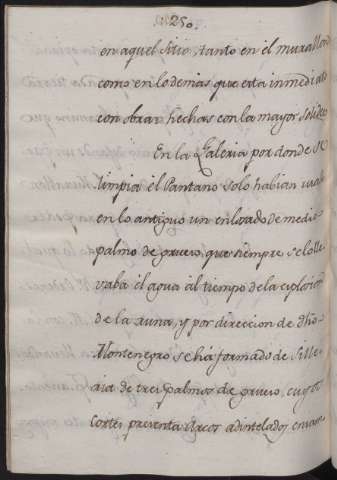 250.
en aquel sitio, tanto en el murallon
como en lo demas que esta inmediato
con obras hechas con la mayor solidez
En la Galeria por donde se
limpia el Pantano solo habian usado
en lo antiguo un enlosado de medio
palmo de grueso, que siempre se lo lle
vaba el agua al tiempo de la explosion
de la runa, y por direccion de dho
Montenegro se ha formado de Sille
ria de tres palmos de grueso, cuyos
Cortes presenta Arcos adintelados